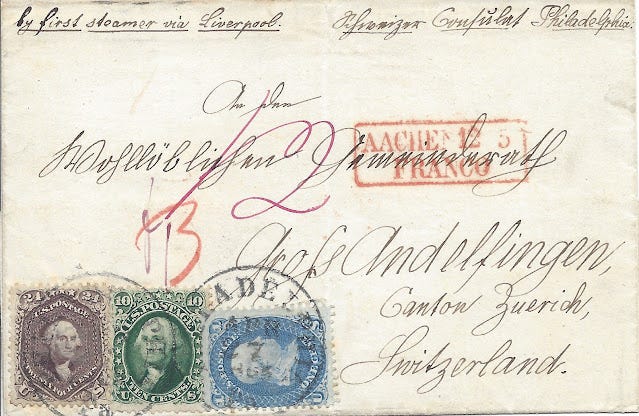 by first steamer via Liverpool.
Schweizer Consulat Philadelphia.
An den
Wohllöblichen Gemeinderath
AACHEN 12 5
FRANCO
1/2
Gross Andelfingen,
Canton Zuerich,
Switzerland.
24 24
U.S. POSTAGE
U S
10 10
U.S. POSTAGE
TEN CENTS
U S
ADEL
7